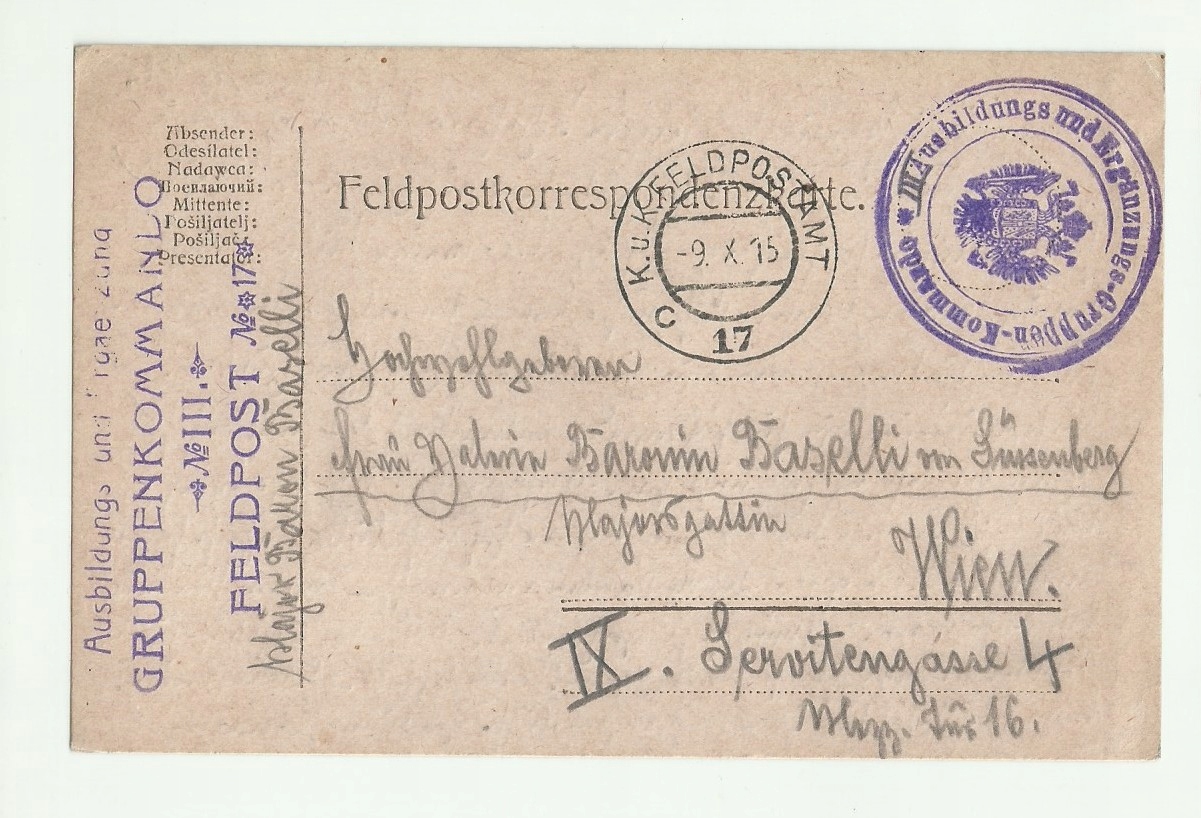 Absender:
Odesílatel:
Nadawca:
Посилаючий:
Mittente:
Pošiljatelj:
Pošiljač:
Presentator:
Feldpostkorrespondenzkarte.
K.u.K. FELDPOSTAMT
-9. X. 15
C
17
Ausbildungs und Ergänzungs-Gruppen-Kommando *
Ausbildungs und
GRUPPENKOMMANDO
№ III.
FELDPOST № 17
Major Baron Baselli
Hochwohlgeboren
Frau Baronin Baselli von Süssenberg
Majorsgattin
Wien.
IX. Servitengasse 4
Mezz. Tür 16.